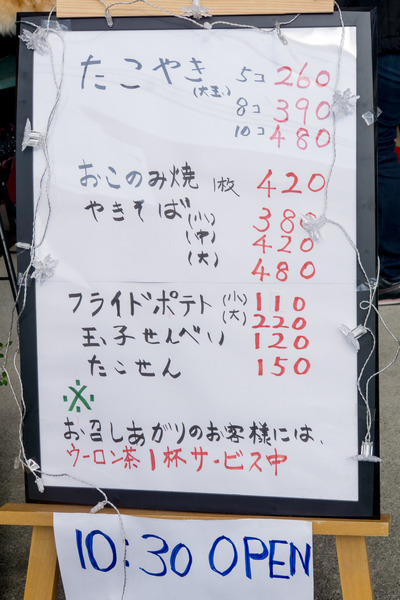 たこやき 5コ 260
(大玉) 8コ 390
10コ 480
おこのみ焼 1枚 420
やきそば (小) 380
(中) 420
(大) 480
フライドポテト (小) 110
(大) 220
玉子せんべい 120
たこせん 150
※
お召しあがりのお客様には、
ウーロン茶1杯サービス中
10:30 OPEN